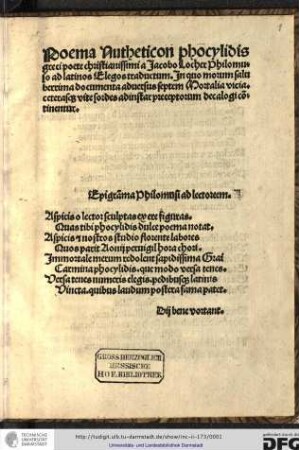 Poema Nutheticon phocylidis
greci poete christianissimi a Jacobo Locher Philomu-
so ad latinos Elegos traductum. In quo morum salu
berrima documenta adversus septem Mortalia vicia
ceterasqz vite sordes ad instar preceptorum decalogi cō
tinentur.
Epigrāma Philomusi ad lectorem.
Aspicis o lector sculptas ex ere figuras.
Quas tibi phocylidis dulce poema notat.
Aspicis et nostros studio florente labores
Quos parit Aonij pervigil hora chori.
Immortale merum redolent sapidissima Grai
Carmina phocylidis. que modo versa tenes.
Versa tenes numeris elegis. pedibusqz latinis
Vincta. quibus laudum postera fama patet.
Dij bene vortant.
GROSSHERZOGLICH
HESSISCHE
HOFBIBLIOTHEK
TECHNISCHE
UNIVERSITÄT
DARMSTADT
http://tudigit.ulb.tu-darmstadt.de/show/inc-ii-173/0001
Universitäts- und Landesbibliothek Darmstadt
gefördert durch die
DFG